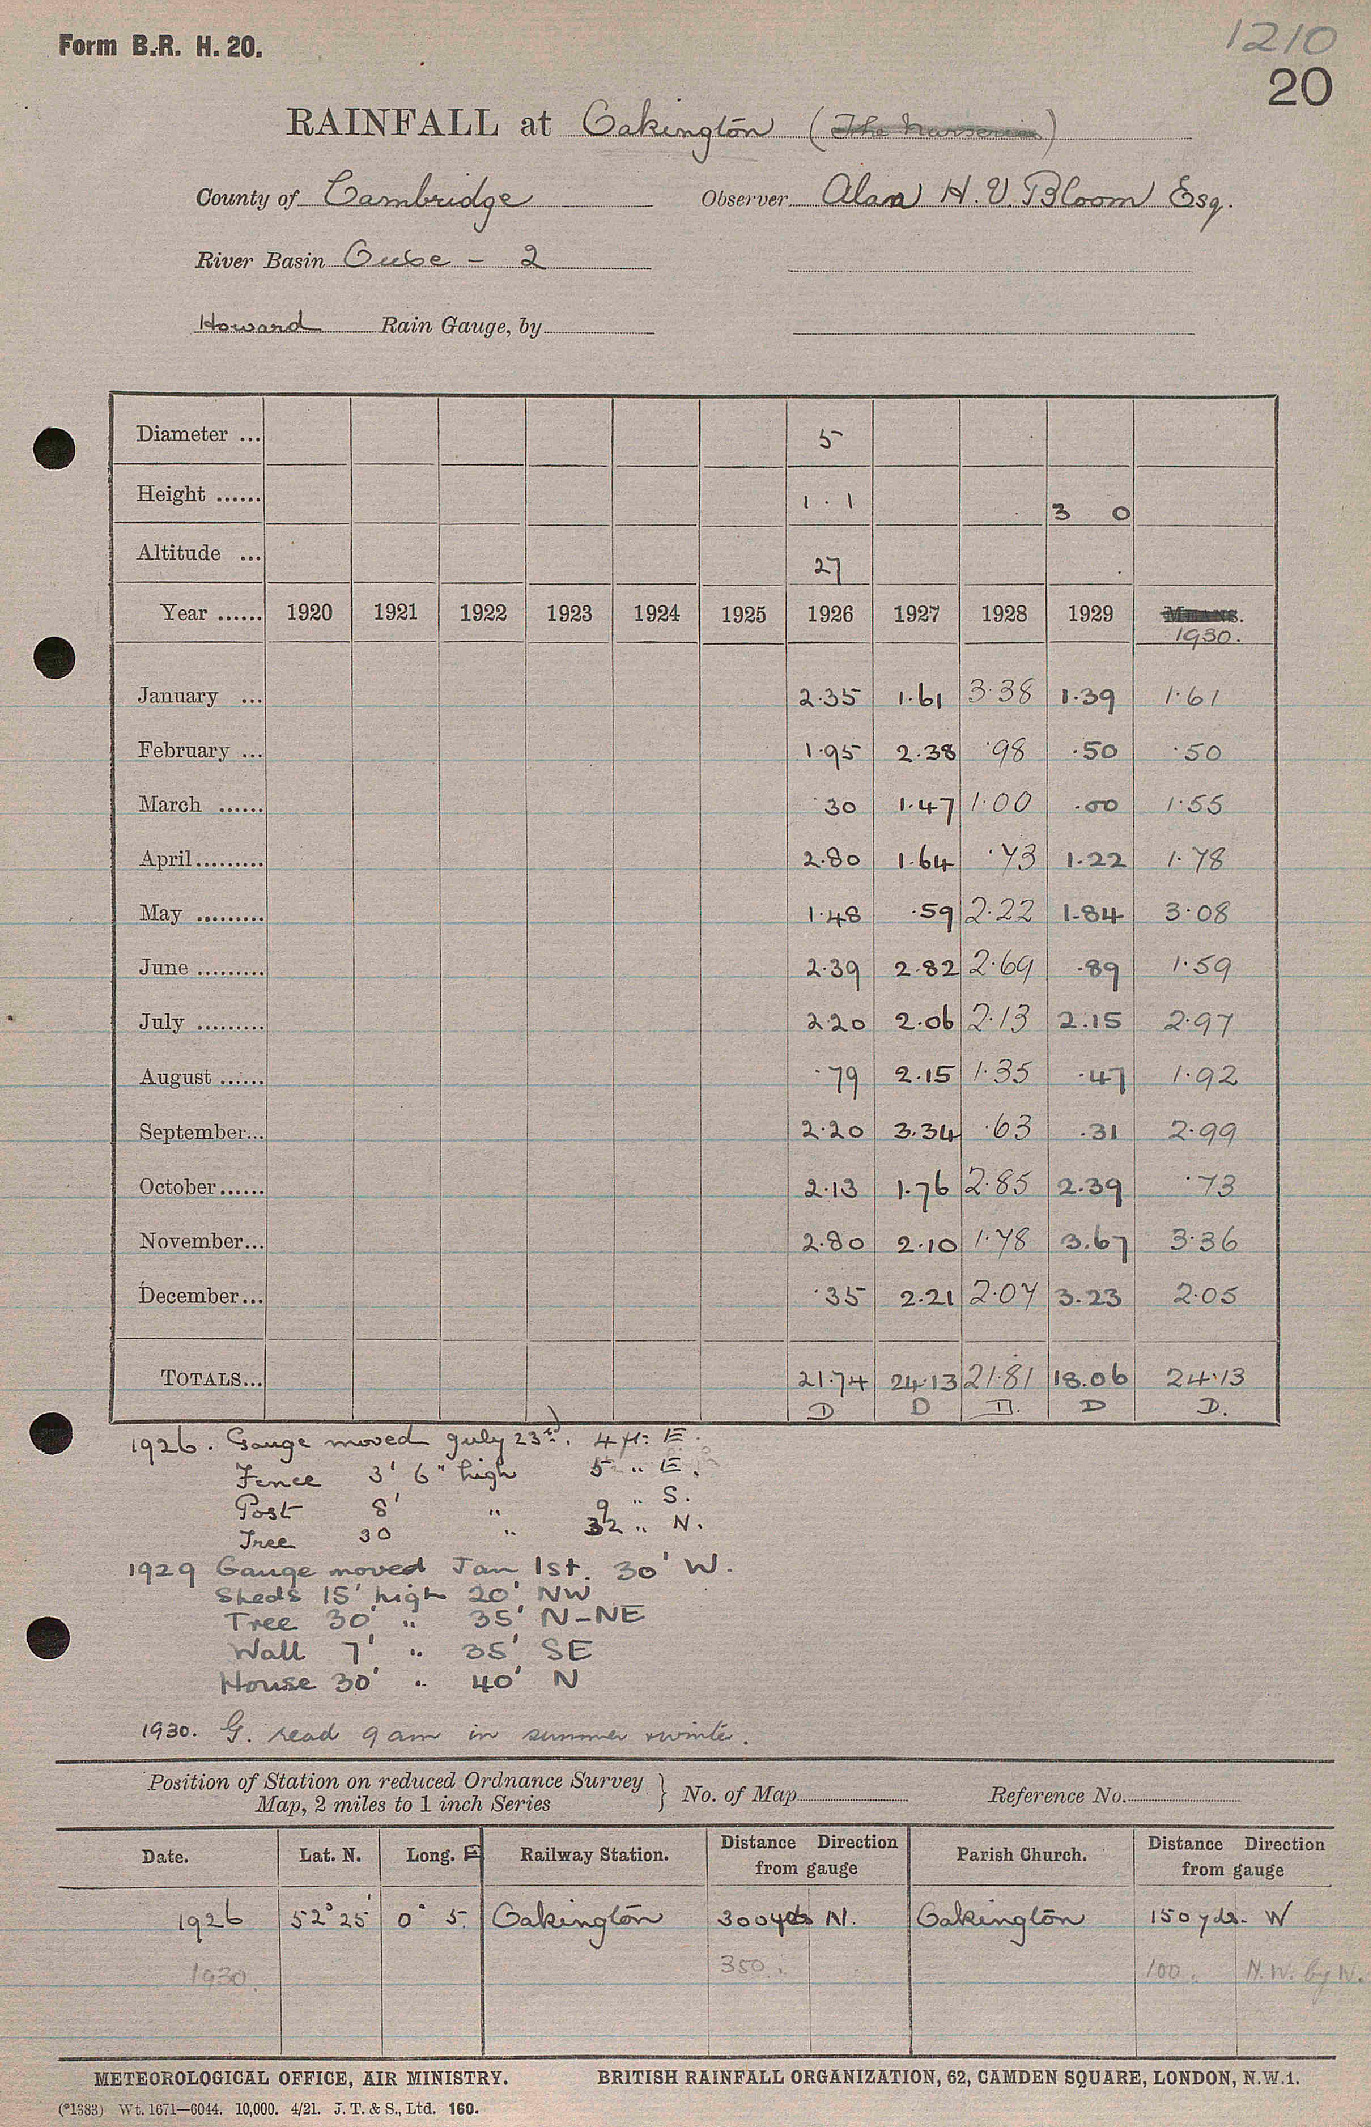 Form B.R. H. 20.
1210
20
RAINFALL at Oakington (The Nurseries)
County of Cambridge Observer Alan H. V. Bloom Esq.
River Basin Ouse - 2
Howard Rain Gauge, by
Diameter ... 5
Height ...... 1 · 1 3 0
Altitude ... 27
Year ...... 1920 1921 1922 1923 1924 1925 1926 1927 1928 1929 Means.
1930.
January ... 2·35 1·61 3·38 1·39 1·61
February ... 1·95 2·38 ·98 ·50 ·50
March ...... ·30 1·47 1·00 ·00 1·55
April......... 2·80 1·64 ·73 1·22 1·78
May ......... 1·48 ·59 2·22 1·84 3·08
June ......... 2·39 2·82 2·69 ·89 1·59
July ......... 2·20 2·06 2·13 2·15 2·97
August ...... ·79 2·15 1·35 ·47 1·92
September... 2·20 3·34 ·63 ·31 2·99
October...... 2·13 1·76 2·85 2·39 ·73
November... 2·80 2·10 1·78 3·67 3·36
December... ·35 2·21 2·07 3·23 2·05
TOTALS... 21·74 24·13 21·81 18·06 24·13
D D D. D D.
1926. Gauge moved July 23rd. 4 ft. E.
Fence 3' 6" high 5 " E.
Post 8' " 9 " S.
Tree 30 " 32 " N.
1929 Gauge moved Jan 1st. 30' W.
Sheds 15' high 20' NW
Tree 30' " 35' N-NE
Wall 7' " 35' SE
House 30' " 40' N
1930. G. read 9 am in summer & winter.
Position of Station on reduced Ordnance Survey Map, 2 miles to 1 inch Series } No. of Map Reference No.
Date. Lat. N. Long. E Railway Station. Distance Direction from gauge Parish Church. Distance Direction from gauge
1926 52° 25' 0° 5. Oakington 300 yds N. Oakington 150 yds. W
1930. 350 " 100 " N.W. by N.
METEOROLOGICAL OFFICE, AIR MINISTRY. BRITISH RAINFALL ORGANIZATION, 62, CAMDEN SQUARE, LONDON, N.W.1.
(*1383) Wt. 1671—6044. 10,000. 4/21. J. T. & S., Ltd. 160.